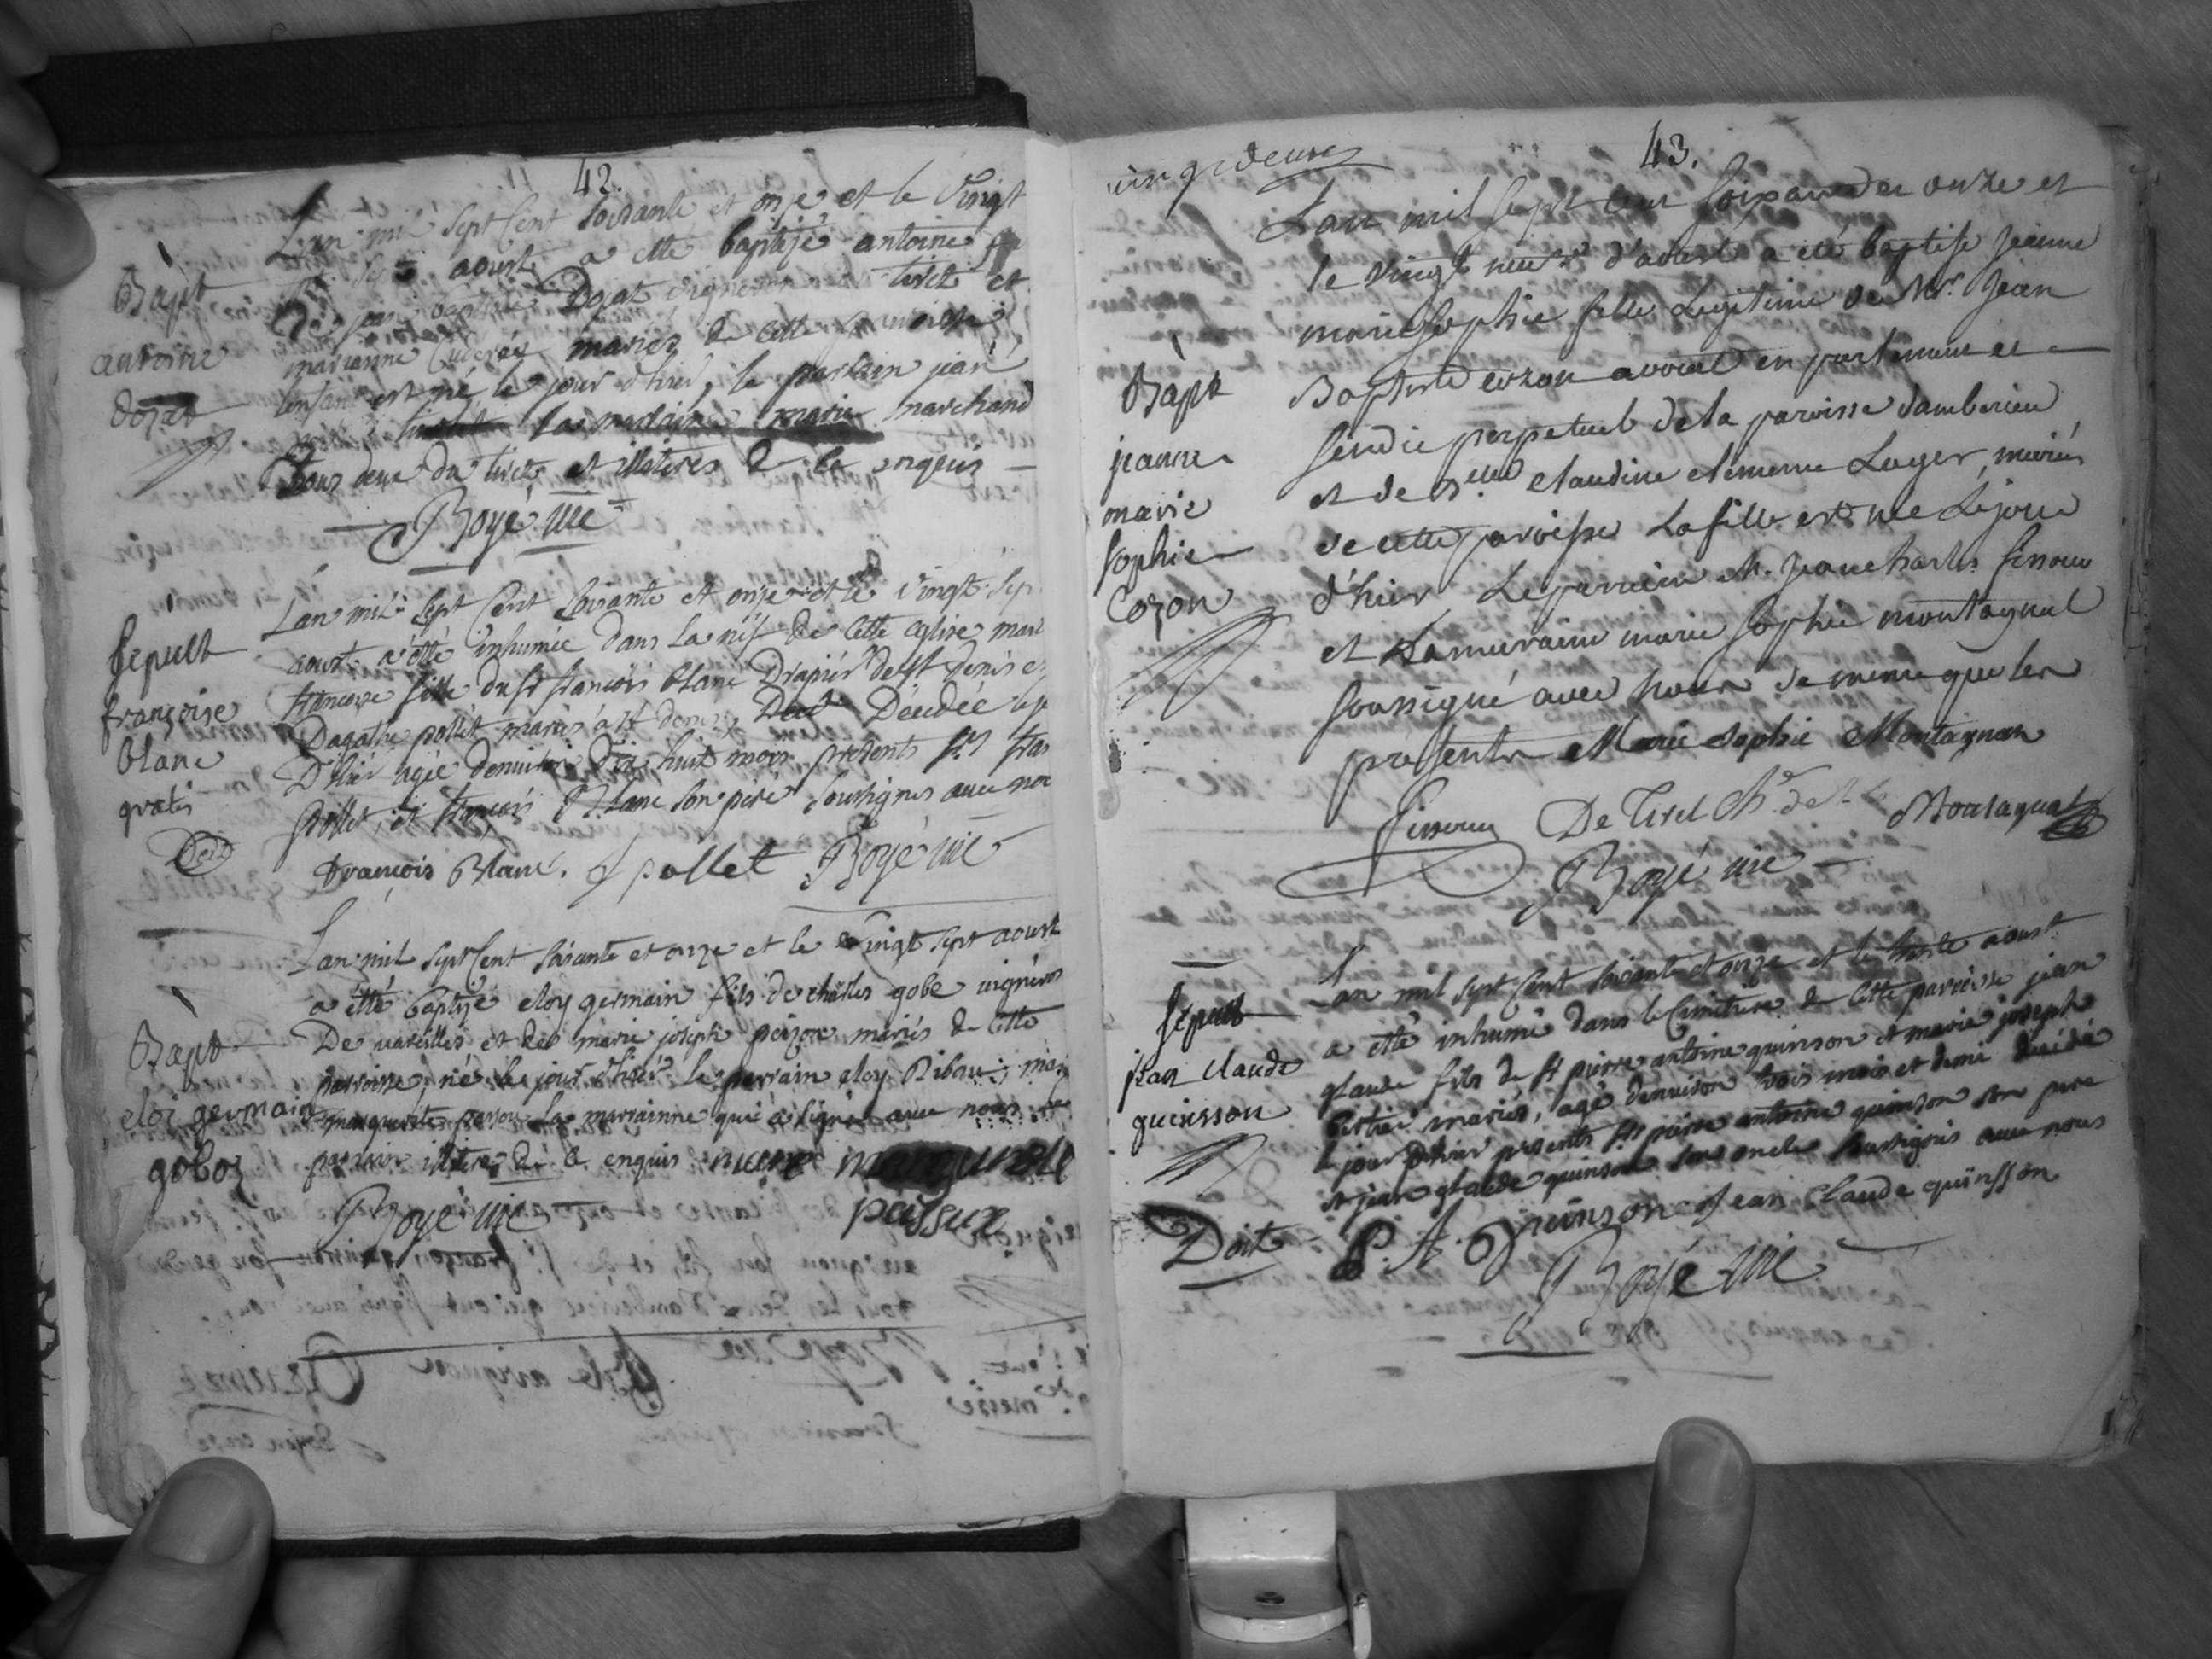 42.
L'an mil sept Cent soixante et onze et le Vingt
sept aoust a etté baptizé antoine
De jean baptiste Dozat vigneron tiret et
marianne mariez de cette paroisse
lenfant est né le jour d'hier, le parrain jean
la marraine marie marchand
tous deux du tiret et illiteres de ce enquis
Boyé vic
Bapt
antoine
dozat
L'an mil sept Cent soixante et onze et le vingt sep
aoust a été inhumée dans la nef de cette eglise mari
francoise fille du sr francois blanc Drapier de st denis e
Dagathe pollet mariés a st denis, Décédée le j
D'hier agée denuiron dix huit mois presents srs fran
pollet, et francois Blanc son pere soussignés avec no
françois Blanc. f pollet Boyé vic
Sepult
françoise
blanc
gratis
Doit
L'an mil sept Cent soixante et onze et le Vingt sept aoust
a etté baptizé eloy germain fils de charles gobe vigneron
De vareilles et de marie joseph mariés de cette
parroisse, né le jour d'hier le parrain eloy Ribou;
marguerite la marrainne qui a signé avec nous le
parrain illitere de ce enquis
Boyé vic
Bapt
eloi germain
goboz
vingt deux
43.
L'an mil sept cent soixante onze et
le vingt neuf d'aoust a été baptisé jeanne
marie sophie fille Legitime de Mr. Jean
Baptiste cozon avocat en parlement et
scindic perpetuel de la paroisse dambericu
et de Delle claudine clemence Luger, mariés
de cette paroisse La fille est née Le jour
d'hier Le parrain M. Jean charles
et La maraine marie sophie montagnat
soussigné avec nous de meme que les
presents Marie Sophie Montagnat
De Tiret Chr de Montagnat
Boyé vic
Bapt
jeanne
marie
sophie
Cozon
L'an mil sept Cent soixante et onze et le trente aoust
a etté inhumé dans le Cimitiere de cette paroisse jean
glaude fils de sr pierre antoine quinson et marie joseph
mariés, agé denuiron trois mois et demi décédé
le jour d'hier presents srs pierre antoine quinson son pere
et jean glaude quinson son oncle soussignés avec nous
P. A. Quinson Jean Claude quinsson
Boyé vic
Sepult
jean claude
quinsson
Doit